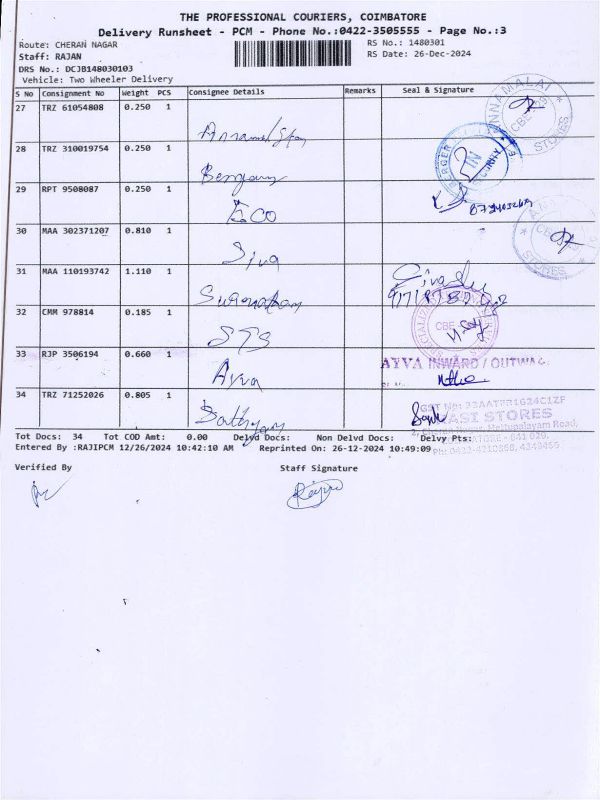 THE PROFESSIONAL COURIERS, COIMBATORE
Delivery Runsheet - PCM - Phone No.:0422-3505555 - Page No.:3
Route: CHERAN NAGAR
RS No.: 1480301
Staff: RAJAN
RS Date: 26-Dec-2024
DRS No.: DCJB148030103
Vehicle: Two Wheeler Delivery
S No Consignment No Weight PCS Consignee Details Remarks Seal & Signature
27 TRZ 61054808 0.250 1
ANNAMALAI STORES
28 TRZ 310019754 0.250 1
BERGER
IN
29 RPT 9508087 0.250 1
30 MAA 302371207 0.810 1
Siva
STORES
31 MAA 110193742 1.110 1
32 CMM 978814 0.185 1
STS
CBE
33 RJP 3506194 0.660 1
Ayva
AYVA INWARD / OUTWA
34 TRZ 71252026 0.805 1
Sathyam
GST No: 33AATFR1624C1ZF
STORES
Mettupalayam Road,
Tot Docs: 34 Tot COD Amt: 0.00 Delvd Docs: Non Delvd Docs: Delvy Pts:
Entered By :RAJIPCM 12/26/2024 10:42:10 AM Reprinted On: 26-12-2024 10:49:09
Verified By Staff Signature